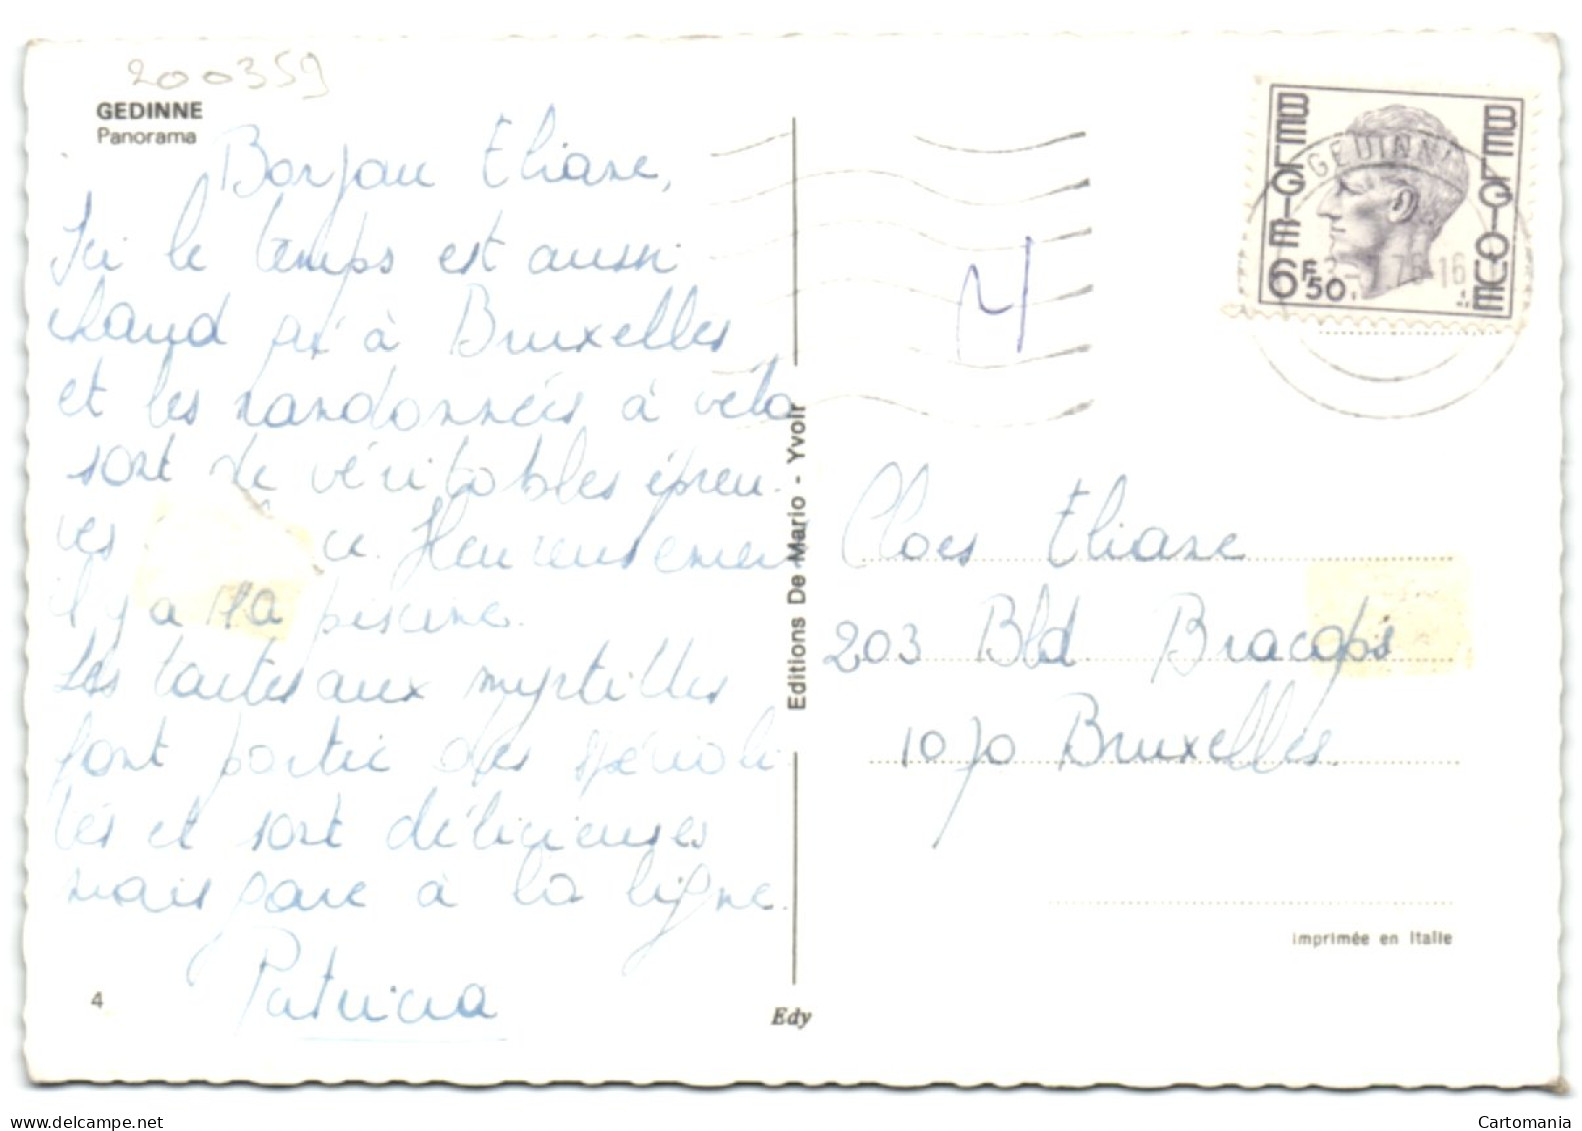 200359
GEDINNE
Panorama
Bonjour Eliane,
Ici le temps est aussi
chaud qu'à Bruxelles
et les randonnées à vélo
sont de véritables épreu-
ves ce. Heureusement
il y a la piscine.
Les tartes aux myrtilles
font partie des spéciali-
tés et sont délicieuses
mais gare à la ligne.
Patricia
4
Editions De Mario - Yvoir
Edy
BELGIE
BELGIQUE
6F50
GEDINNE
16
Cloes Eliane
203 Bld Bracops
1070 Bruxelles
Imprimée en Italie
www.delcampe.net
Cartomania